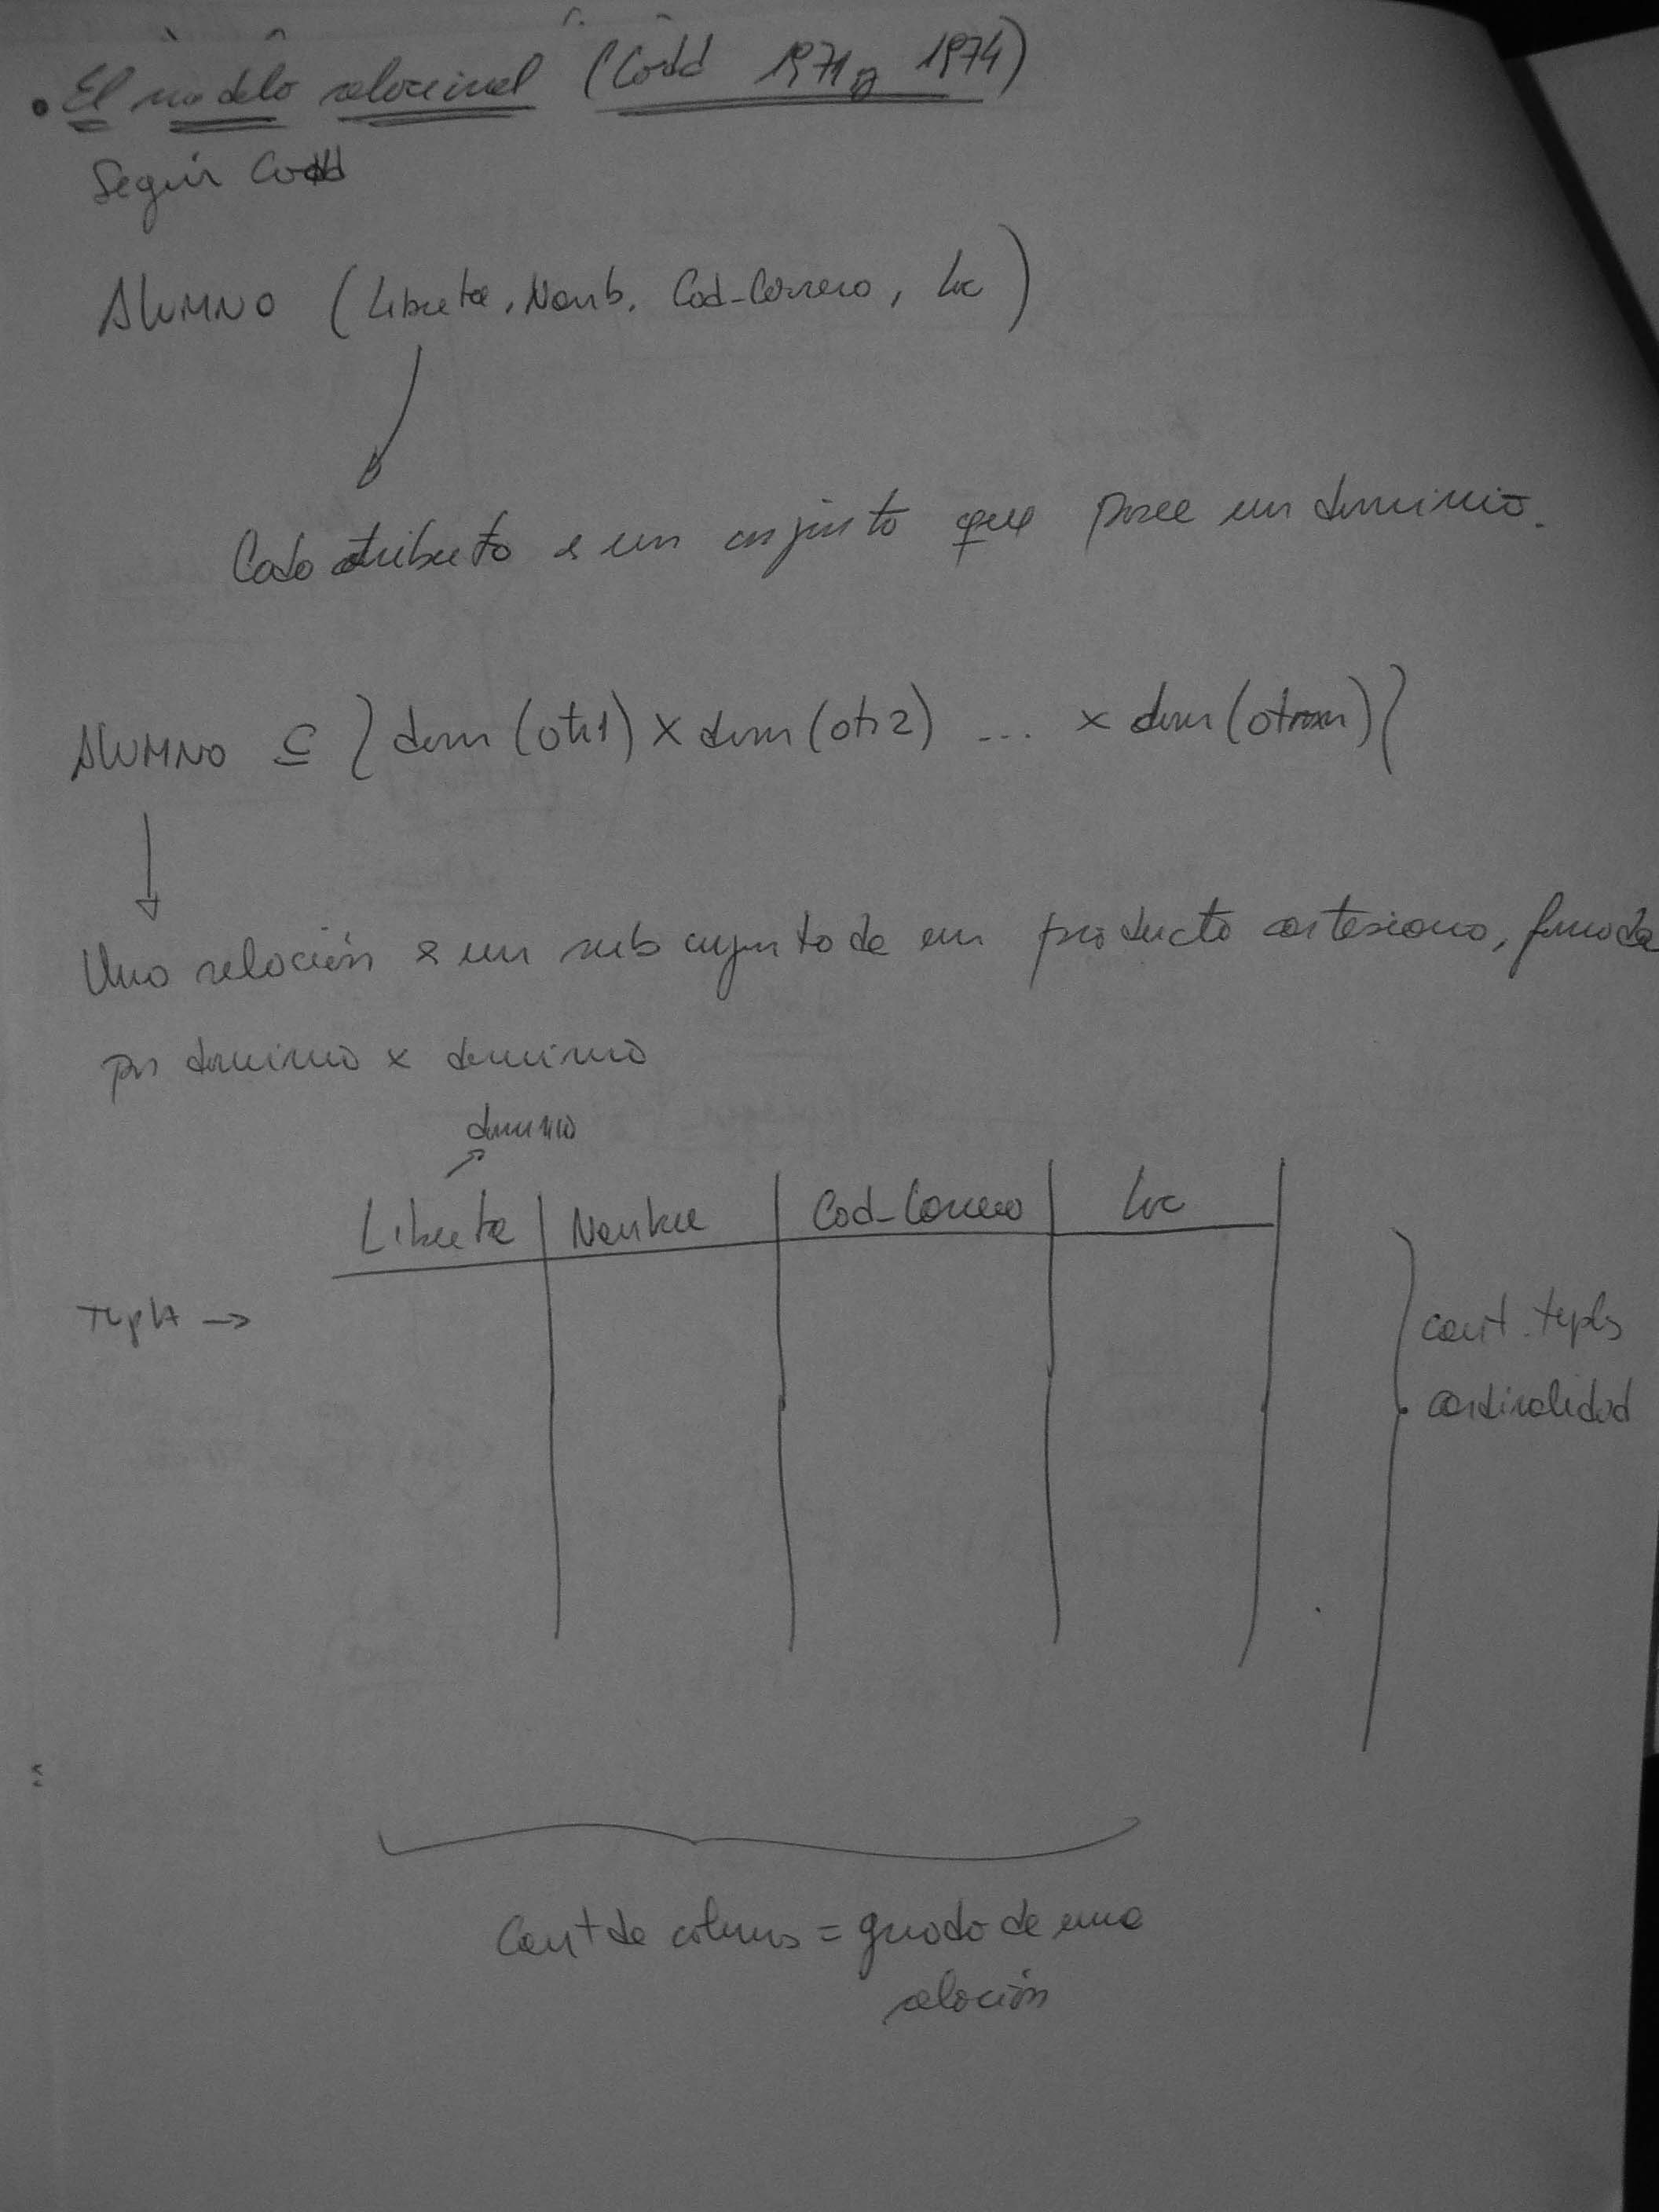 • El modelo relacional (Codd 1971 a 1974)
Según Codd
ALUMNO (Libreta, Nomb. Cod-Carrera, Loc)
Cada atributo es un conjunto que posee un dominio.
ALUMNO ⊆ { dom (atr1) x dom (atr2) ... x dom (atrn) }
Una relación es un subconjunto de un producto cartesiano, formada
por dominio x dominio
dominio
Libreta | Nombre | Cod-Carrera | Loc
TUPLA →
cant. tuplas
cardinalidad
Cant de columnas = grado de una
relación